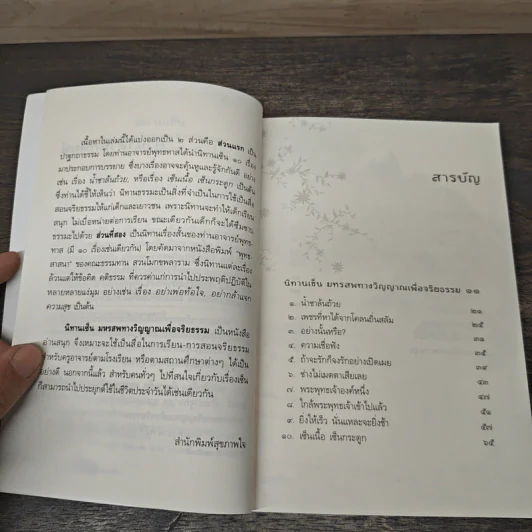 เนื้อหาในเล่มนี้ได้แบ่งออกเป็น ๒ ส่วนคือ ส่วนแรก เป็น
ปาฐกถาธรรม โดยท่านอาจารย์พุทธทาสได้นำนิทานเซ็น ๑๐ เรื่อง
มาประกอบการบรรยาย ซึ่งบางเรื่องอาจจะคุ้นหูและรู้จักกันดี อย่าง
เช่น เรื่อง น้ำชาล้นถ้วย, หรือเรื่อง เซ็นเนื้อ เซ็นกระดูก เป็นต้น
ซึ่งท่านได้ชี้ให้เห็นว่า นิทานธรรมะเป็นสิ่งที่จำเป็นในการใช้เป็นสื่อ
สอนจริยธรรมให้แก่เด็กและเยาวชน เพราะนิทานจะทำให้เด็กเรียน
สนุก ไม่เบื่อหน่ายต่อการเรียน ขณะเดียวกันเด็กก็จะได้ซึมซาบ
ธรรมะไปด้วย ส่วนที่สอง เป็นนิทานเรื่องสั้นของท่านอาจารย์พุทธ-
ทาส (มี ๑๐ เรื่องเช่นเดียวกัน) โดยคัดมาจากหนังสือพิมพ์ "พุทธ-
สาสนา" ของคณะธรรมทาน สวนโมกขพลาราม ซึ่งนิทานแต่ละเรื่อง
ล้วนแต่ให้ข้อคิด คติธรรม ที่ควรค่าแก่การนำไปประพฤติปฏิบัติใน
หลายหลายแง่มุม อย่างเช่น เรื่อง อย่าเพ่อท้อใจ, อยากล้ำแดก
ความสุข เป็นต้น
นิทานเซ็น มหรสพทางวิญญาณเพื่อจริยธรรม เป็นหนังสือ
อ่านสนุก จึงเหมาะจะใช้เป็นสื่อในการเรียน-การสอนจริยธรรม
สำหรับครูอาจารย์ตามโรงเรียน หรือตามสถานศึกษาต่างๆ ได้เป็น
อย่างดี นอกจากนี้แล้ว สำหรับคนทั่วๆ ไปที่สนใจเกี่ยวกับเรื่องเซ็น
ก็สามารถนำไปประยุกต์ใช้ในชีวิตประจำวันได้เช่นเดียวกัน
สำนักพิมพ์สุขภาพใจ
สารบัญ
นิทานเซ็น มหรสพทางวิญญาณเพื่อจริยธรรม ๑๑
๑. น้ำชาล้นถ้วย ๒๑
๒. เพชรที่หาได้จากโคลนถิ่นสลัม ๒๕
๓. อย่างนั้นหรือ? ๓๑
๔. ความเชื่อฟัง ๓๕
๕. ถ้าจะรักก็จงรักอย่างเปิดเผย ๓๙
๖. ช่างไม่เมตตาเสียเลย ๔๓
๗. พระพุทธเจ้าองค์หนึ่ง ๔๗
๘. ใกล้พระพุทธเจ้าเข้าไปแล้ว ๕๑
๙. ยิ่งให้เร็ว นั่นแหละจะยิ่งช้า ๕๗
๑๐. เซ็นเนื้อ เซ็นกระดูก ๖๕